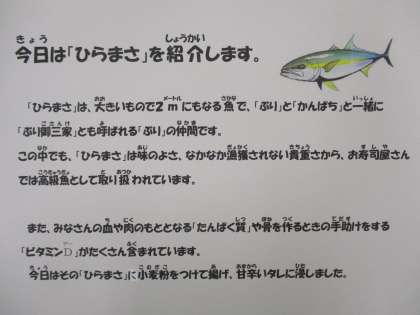 今日は「ひらまさ」を紹介します。
「ひらまさ」は、大きいもので2mにもなる魚で、「ぶり」と「かんぱち」と一緒に
「ぶり御三家」とも呼ばれる「ぶり」の仲間です。
この中でも、「ひらまさ」は味のよさ、なかなか漁獲されない貴重さから、お寿司屋さん
では高級魚として取り扱われています。
また、みなさんの血や肉のもととなる「たんぱく質」や骨を作るときの手助けをする
「ビタミンD」がたくさん含まれています。
今日はその「ひらまさ」に小麦粉をつけて揚げ、甘辛いタレに浸しました。